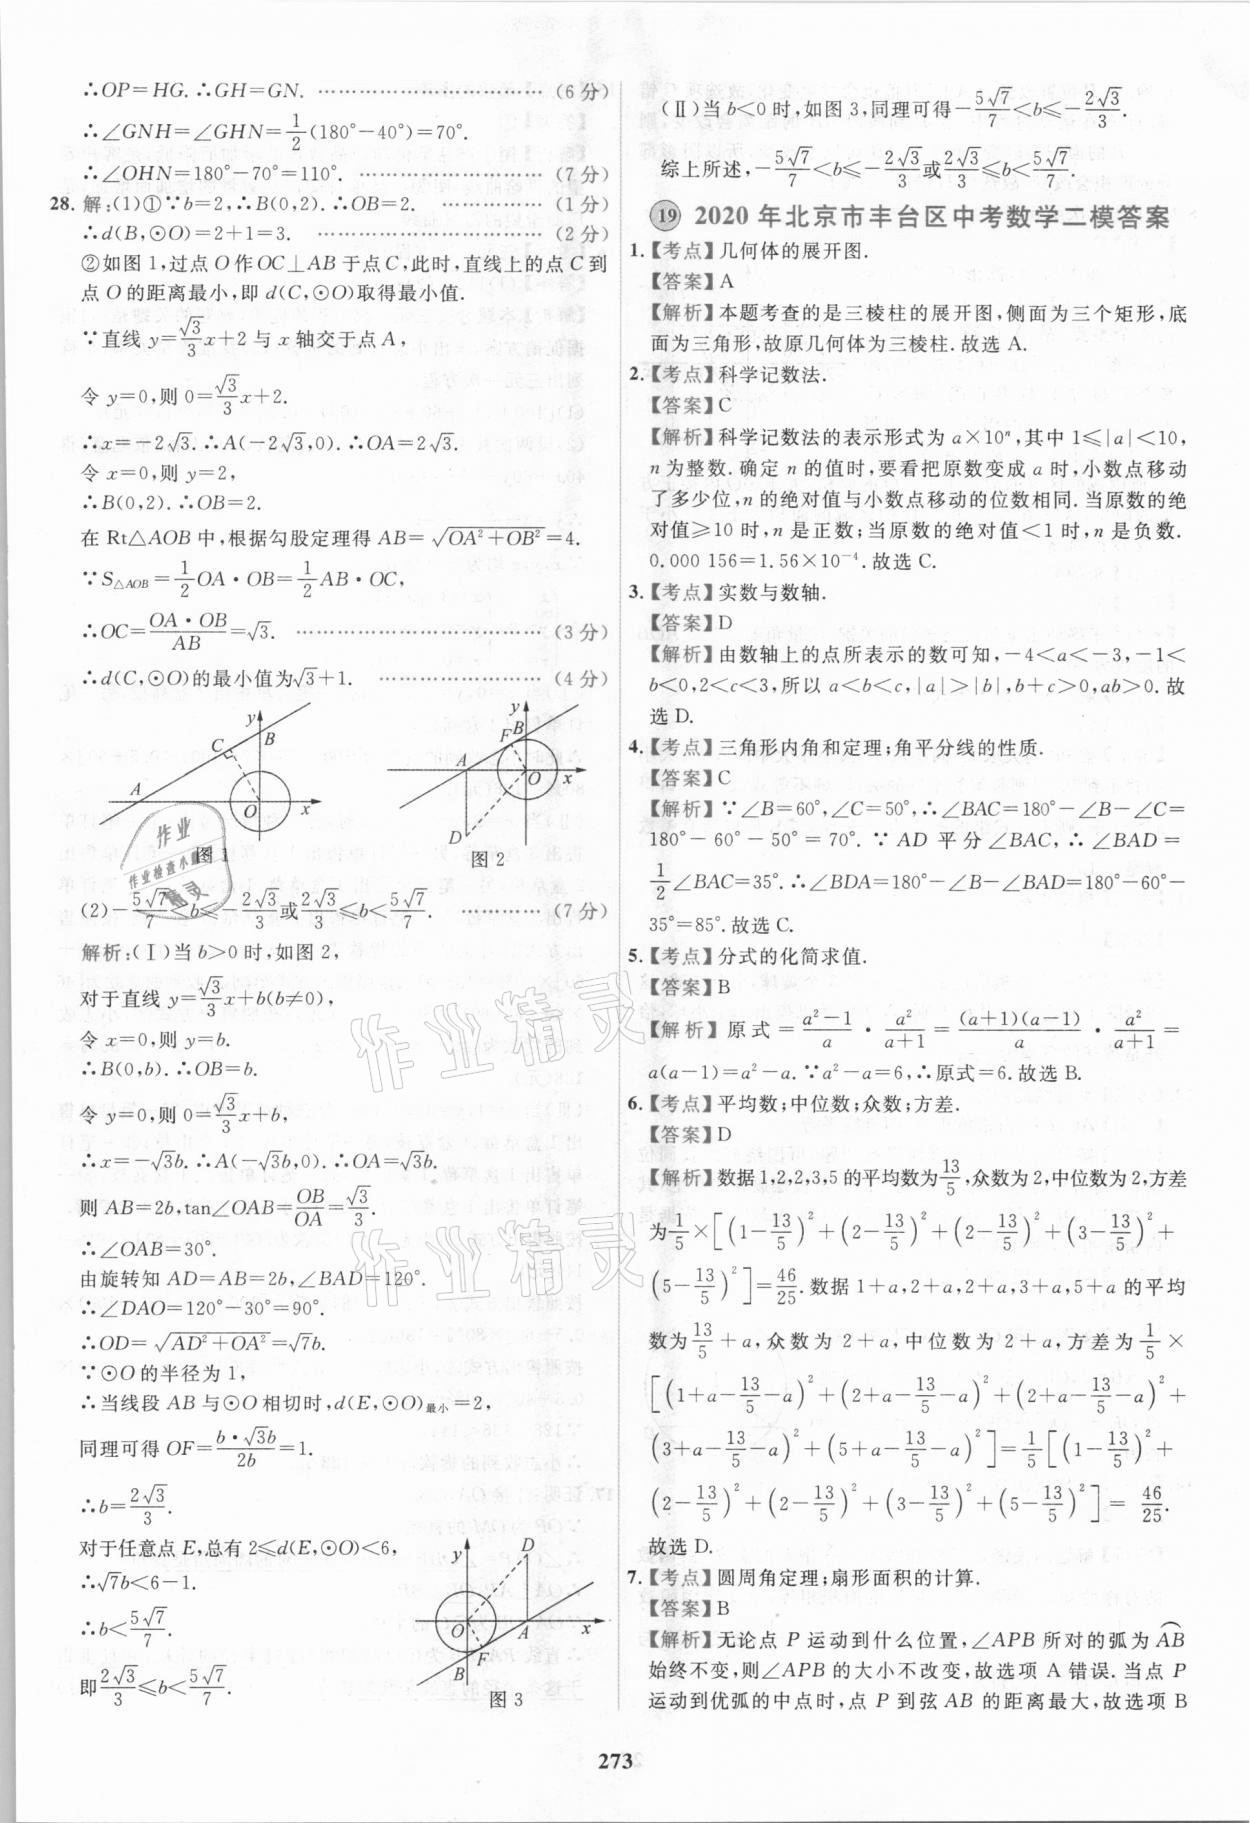 ∴OP=HG. ∴GH=GN. ……………………………(6分)
∴∠GNH=∠GHN=1/2(180°-40°)=70°.
∴∠OHN=180°-70°=110°. ………………………(7分)
28. 解:(1)①∵b=2,∴B(0,2). ∴OB=2. …………(1分)
∴d(B,⊙O)=2+1=3. ……………………………(2分)
②如图1,过点O作OC⊥AB于点C,此时,直线上的点C到
点O的距离最小,即d(C,⊙O)取得最小值.
∵直线y=√3/3x+2与x轴交于点A,
令y=0,则0=√3/3x+2.
∴x=-2√3. ∴A(-2√3,0). ∴OA=2√3.
令x=0,则y=2,
∴B(0,2). ∴OB=2.
在Rt△AOB中,根据勾股定理得AB=√(OA²+OB²)=4.
∵S△AOB=1/2OA·OB=1/2AB·OC,
∴OC=OA·OB/AB=√3. ……………………………(3分)
∴d(C,⊙O)的最小值为√3+1. …………………(4分)
y B C A O x
图1
y F B A O x D
图2
(2)-5√7/7<b≤-2√3/3或2√3/3≤b<5√7/7. …………(7分)
解析:(Ⅰ)当b>0时,如图2,
对于直线y=√3/3x+b(b≠0),
令x=0,则y=b.
∴B(0,b). ∴OB=b.
令y=0,则0=√3/3x+b,
∴x=-√3b. ∴A(-√3b,0). ∴OA=√3b.
则AB=2b,tan∠OAB=OB/OA=√3/3.
∴∠OAB=30°.
由旋转知AD=AB=2b,∠BAD=120°.
∴∠DAO=120°-30°=90°.
∴OD=√(AD²+OA²)=√7b.
∵⊙O的半径为1,
∴当线段AB与⊙O相切时,d(E,⊙O)最小=2,
同理可得OF=b·√3b/2b=1.
∴b=2√3/3.
对于任意点E,总有2≤d(E,⊙O)<6,
∴√7b<6-1.
∴b<5√7/7.
即2√3/3≤b<5√7/7.
y D O A x B F
图3
(Ⅱ)当b<0时,如图3,同理可得-5√7/7<b≤-2√3/3.
综上所述,-5√7/7<b≤-2√3/3或2√3/3≤b<5√7/7.
19 2020年北京市丰台区中考数学二模答案
1.【考点】几何体的展开图.
【答案】A
【解析】本题考查的是三棱柱的展开图,侧面为三个矩形,底
面为三角形,故原几何体为三棱柱.故选A.
2.【考点】科学记数法.
【答案】C
【解析】科学记数法的表示形式为a×10ⁿ,其中1≤|a|<10,
n为整数.确定n的值时,要看把原数变成a时,小数点移动
了多少位,n的绝对值与小数点移动的位数相同.当原数的绝
对值≥10时,n是正数;当原数的绝对值<1时,n是负数.
0.000 156=1.56×10⁻⁴.故选C.
3.【考点】实数与数轴.
【答案】D
【解析】由数轴上的点所表示的数可知,-4<a<-3,-1<
b<0,2<c<3,所以a<b<c,|a|>|b|,b+c>0,ab>0.故
选D.
4.【考点】三角形内角和定理;角平分线的性质.
【答案】C
【解析】∵∠B=60°,∠C=50°,∴∠BAC=180°-∠B-∠C=
180°-60°-50°=70°. ∵AD平分∠BAC,∴∠BAD=
1/2∠BAC=35°. ∴∠BDA=180°-∠B-∠BAD=180°-60°-
35°=85°.故选C.
5.【考点】分式的化简求值.
【答案】B
【解析】原式=(a²-1)/a·a²/(a+1)=(a+1)(a-1)/a·a²/(a+1)=
a(a-1)=a²-a. ∵a²-a=6,∴原式=6.故选B.
6.【考点】平均数;中位数;众数;方差.
【答案】D
【解析】数据1,2,2,3,5的平均数为13/5,众数为2,中位数为2,方差
为1/5×[(1-13/5)²+(2-13/5)²+(2-13/5)²+(3-13/5)²+
(5-13/5)²]=46/25.数据1+a,2+a,2+a,3+a,5+a的平均
数为13/5+a,众数为2+a,中位数为2+a,方差为1/5×
[(1+a-13/5-a)²+(2+a-13/5-a)²+(2+a-13/5-a)²+
(3+a-13/5-a)²+(5+a-13/5-a)²]=1/5[(1-13/5)²+
(2-13/5)²+(2-13/5)²+(3-13/5)²+(5-13/5)²]=46/25.
故选D.
7.【考点】圆周角定理;扇形面积的计算.
【答案】B
【解析】无论点P运动到什么位置,∠APB所对的弧为⌒AB
始终不变,则∠APB的大小不改变,故选项A错误.当点P
运动到优弧的中点时,点P到弦AB的距离最大,故选项B
273
作业
作业检查小
精灵
作业精灵
作业精灵